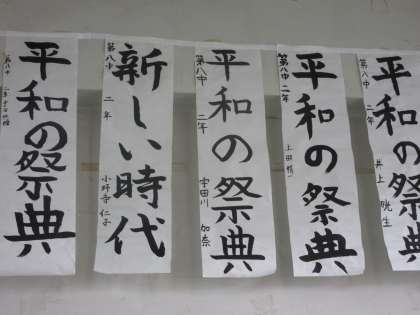 平和の祭典
第八中 二年
新しい時代
第八中 二年
小野寺 仁子
平和の祭典
第八中 二年
宇田川 加奈
平和の祭典
第八中 二年
上田
平和の祭典
第八中 二年
井上 晄生